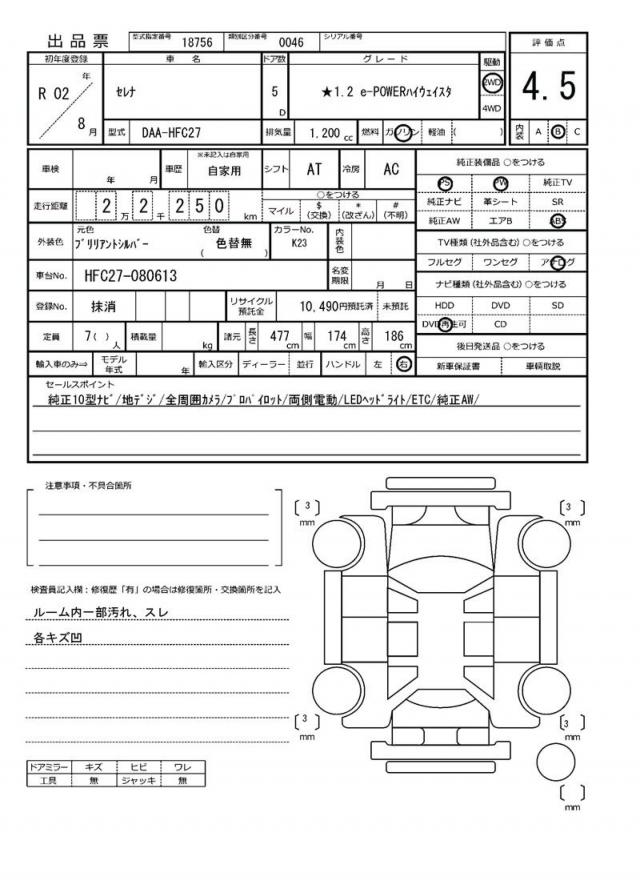 出品票 型式指定番号 18756 類別区分番号 0046 シリアル番号
初年度登録 車名 ドア数 グレード 駆動 評価点
R 02 年 8 月 セレナ 5 D ★1.2 e-POWERハイウェイスタ 2WD 4WD 4.5
型式 DAA-HFC27 排気量 1,200 cc 燃料 ガソリン 軽油 ( ) 内装 A B C
車検 年 月 車歴 ※未記入は自家用 自家用 シフト AT 冷房 AC
走行距離 2 万 2 千 2 5 0 km ○をつける マイル $ (交換) * (改ざん) # (不明)
外装色 元色 ブリリアントシルバー 色替 ( 色替無 ) カラーNo. K23 内装色
車台No. HFC27-080613 名変期限 月 日
登録No. 抹消 リサイクル預託金 10,490円預託済 未預託
定員 7( ) 人 積載量 kg 諸元 長さ 477 cm 幅 174 cm 高さ 186 cm
輸入車のみ⇒ モデル年式 年 輸入区分 ディーラー 並行 ハンドル 左 右
純正装備品 ○をつける
PS PW 純正TV
純正ナビ 革シート SR
純正AW エアB ABS
TV種類(社外品含む) ○をつける
フルセグ ワンセグ アナログ
ナビ種類(社外品含む) ○をつける
HDD DVD SD
DVD再生可 CD
後日発送品 ○をつける
新車保証書 車輌取説
セールスポイント
純正10型ナビ/地デジ/全周囲カメラ/プロパイロット/両側電動/LEDヘッドライト/ETC/純正AW/
注意事項・不具合箇所
検査員記入欄:修復歴「有」の場合は修復箇所・交換箇所を記入
ルーム内一部汚れ、スレ
各キズ凹
ドアミラー キズ ヒビ ワレ
工具 無 ジャッキ 無
〔 3 〕 mm 〔 3 〕 mm
〔 3 〕 mm 〔 3 〕 mm
〔 〕 mm